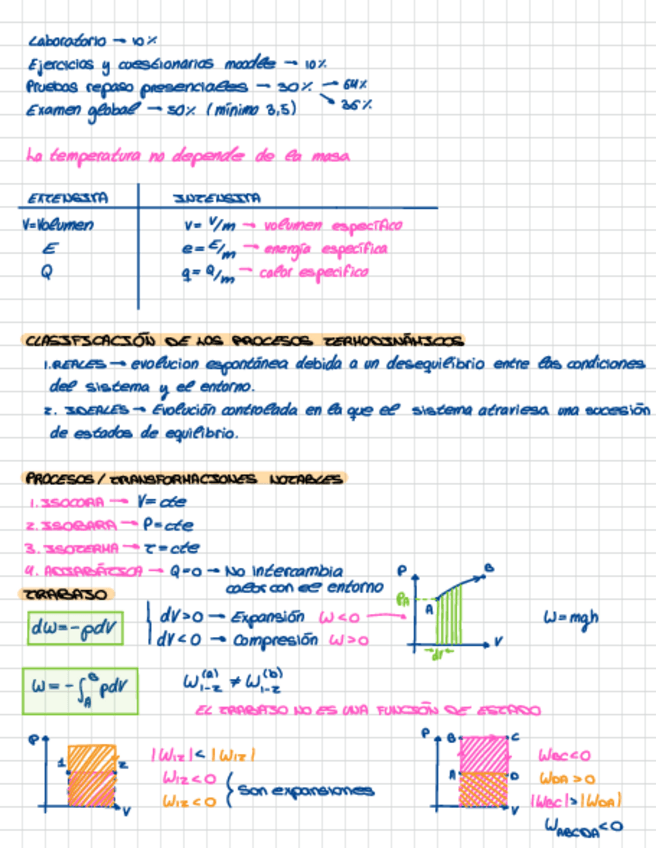 Laboratorio → 10%
Ejercicios y cuestionarios moodle → 10%
Pruebas repaso presenciales → 30% → 64%
→ 36%
Examen global → 50% (mínimo 3,5)
La temperatura no depende de la masa
EXTENSIVA INTENSIVA
V=Volumen v = V/m → volumen específico
E e = E/m → energía específica
Q q = Q/m → calor específico
CLASIFICACIÓN DE LOS PROCESOS TERMODINÁMICOS
1. REALES → evolucion espontánea debida a un desequilibrio entre las condiciones
del sistema y el entorno.
2. IDEALES → Evolución controlada en la que el sistema atraviesa una sucesión
de estados de equilibrio.
PROCESOS / TRANSFORMACIONES NOTABLES
1. ISOCORA → V=cte
2. ISOBARA → P=cte
3. ISOTERMA → T=cte
4. ADIABÁTICA → Q=0 → No intercambia
calor con el entorno
TRABAJO
dW=-pdV
dV>0 → Expansión W<0 →
dV<0 → Compresión W>0
P PA A B V dV
W=mgh
W = -∫_A^B pdV
W_{1-2}^{(a)} ≠ W_{1-2}^{(b)}
EL TRABAJO NO ES UNA FUNCIÓN DE ESTADO
P 1 2 V
|W12|<|W12|
W12<0
W12<0
Son expansiones
P B C A D V
WBC<0
WDA>0
|WBC|>|WDA|
WABCDA<0